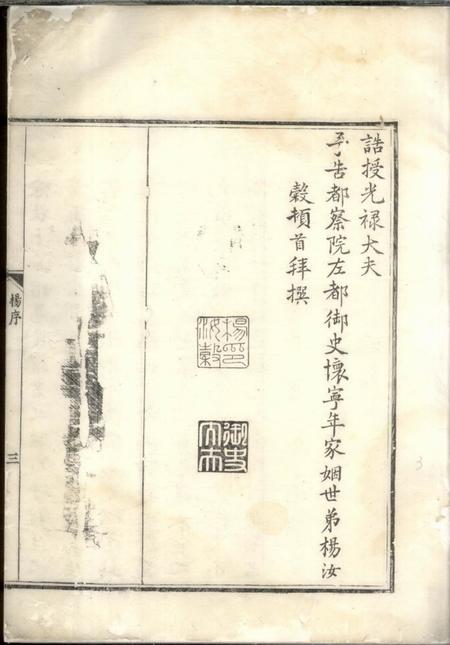 誥授光禄大夫
予告都察院左都御史懷寧年家姻世弟楊汝
穀頓首拜撰
楊印汝穀
御史大夫
楊序
三
3